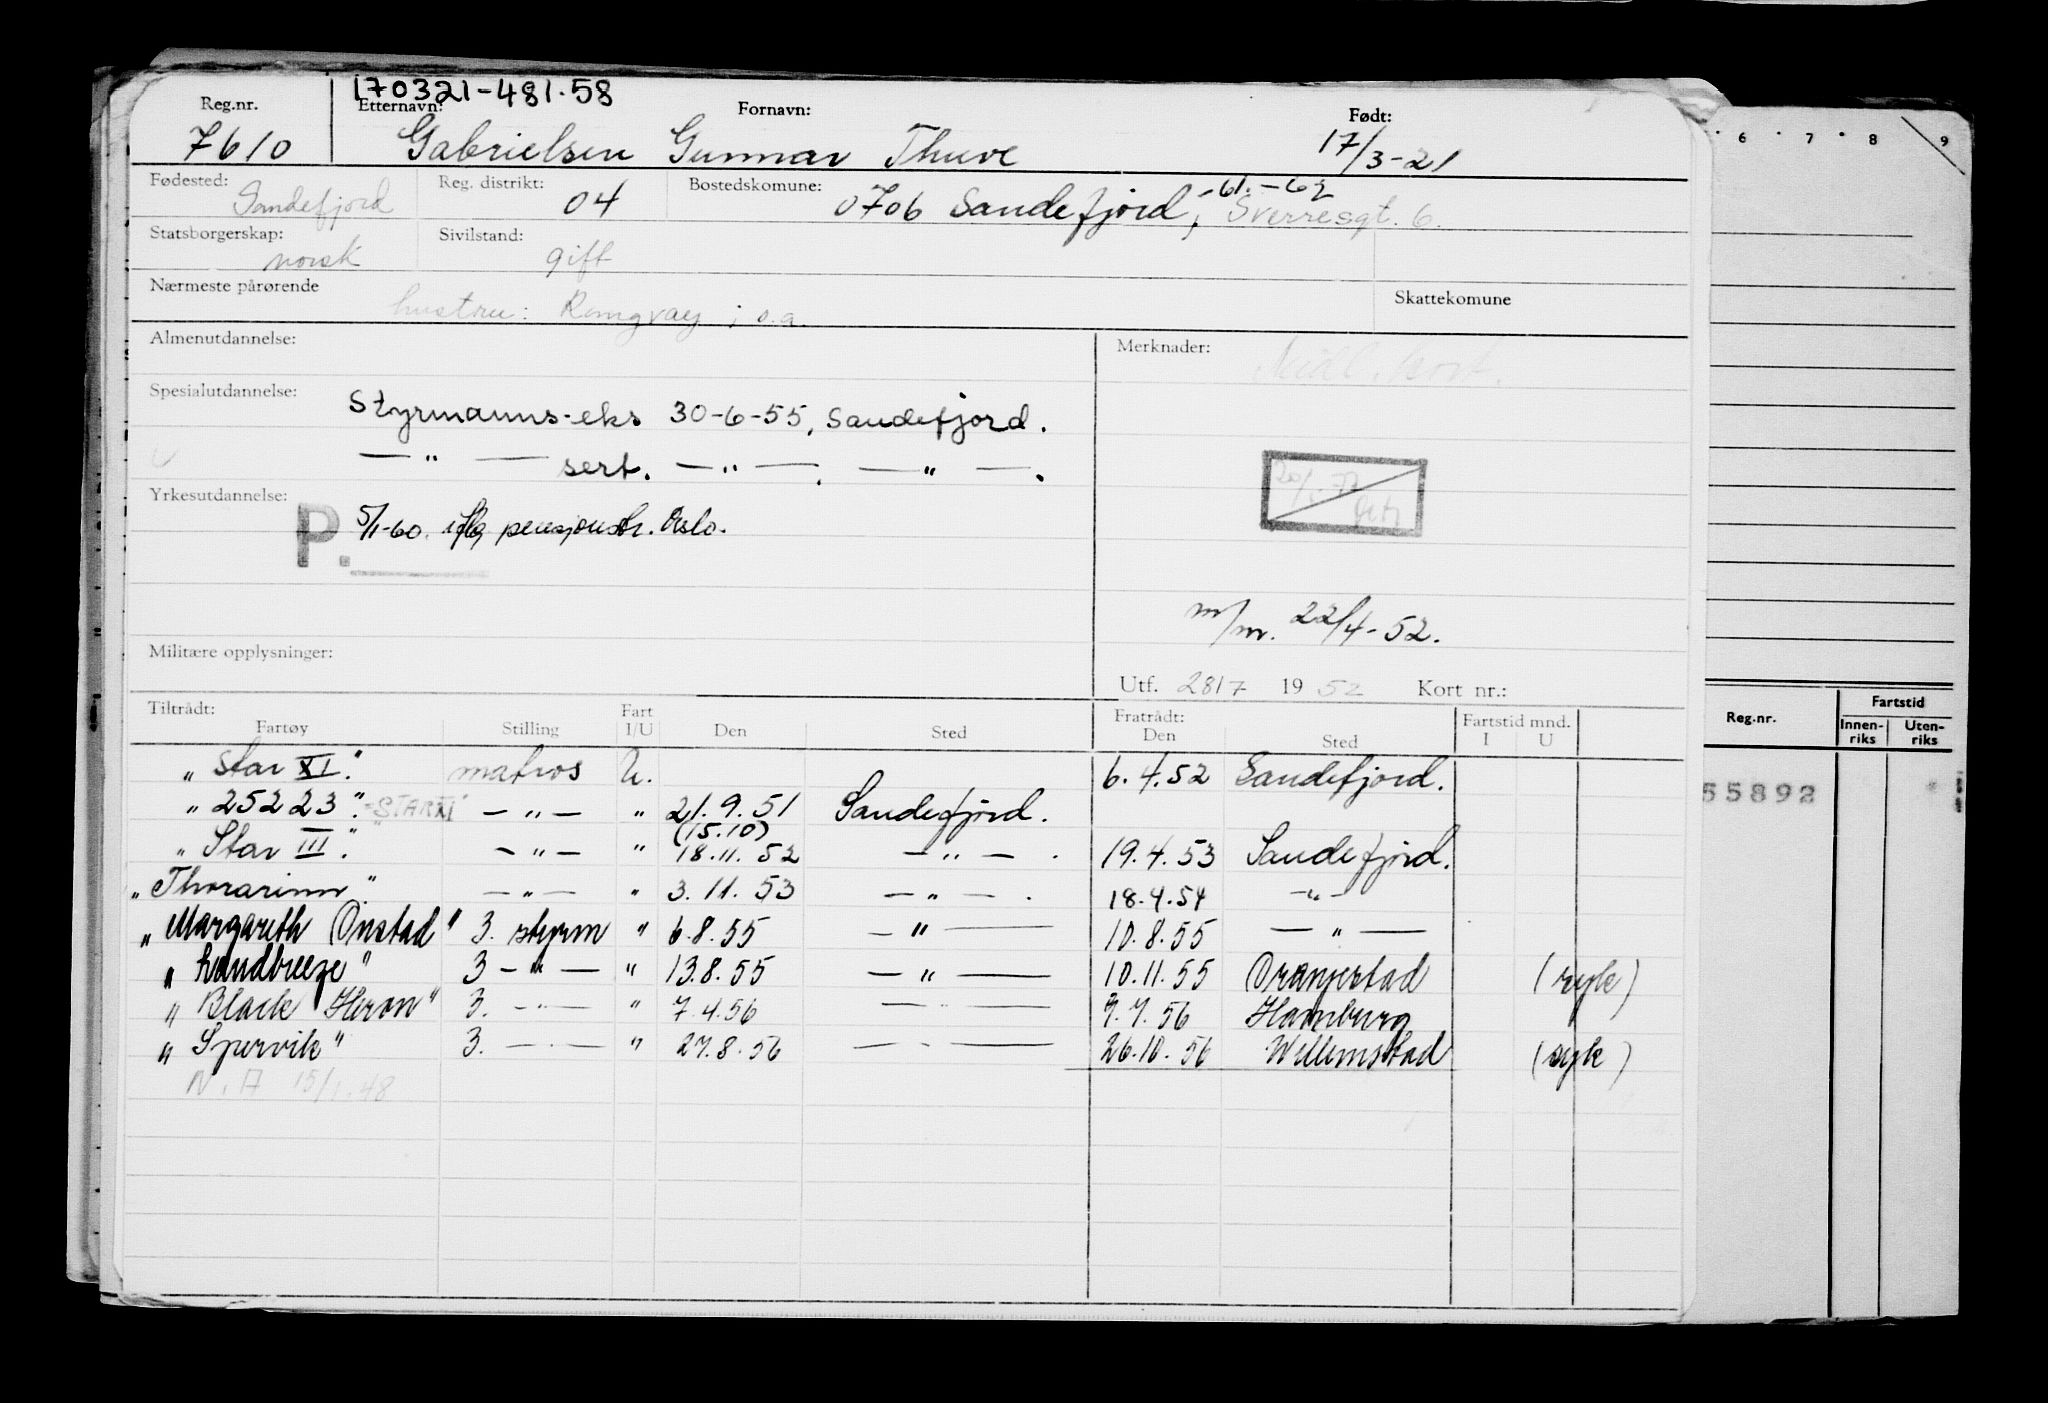 170321-481.58
Reg.nr. Etternavn: Fornavn: Født:
7610 Gabrielsen Gunnar Thuve 17/3-21
Fødested: Reg. distrikt: Bostedskomune: -61.-62
Sandefjord 04 0706 Sandefjord, Sverresgt. 6.
Statsborgerskap: Sivilstand:
norsk gift
Nærmeste pårørende Skattekomune
hustru: i o.a.
Almenutdannelse: Merknader: Midl. kort.
Spesialutdannelse:
Styrmanns-eks 30-6-55, Sandefjord.
— " — sert. — " —. — " —.
Yrkesutdannelse:
P. 5/1-60. iflg pensjonstr. Oslo.
m/m. 22/4-52.
Militære opplysninger:
Utf. 28/7 1952 Kort nr.:
Tiltrådt: Fratrådt: Fartstid mnd.
Fartøy Stilling Fart I/U Den Sted Den Sted I U
"Star XI" matros U. 6.4.52 Sandefjord.
"25223" =STAR XI" — " — " 21.9.51 Sandefjord.
(15.10)
"Star III" — " — " 18.11.52 — " — . 19.4.53 Sandefjord.
"Thorarinn" — " — " 3.11.53 — " — . 18.4.54 — " —
"Margarith Onstad" 3. styrm " 6.8.55 — " — 10.8.55 — " —
"Landbreeze" 3 — " — " 13.8.55 — " — 10.11.55 Oranjestad (syk)
"Black Heron" 3. — " — " 7.4.56 — " — 7.7.56 Hamburg
"Spervik" 3. — " — " 27.8.56 — " — 26.10.56 Willemstad (syk)
N.A 15/1.48
6 7 8 9
Reg.nr. Fartstid
Innen-riks Uten-riks
55892